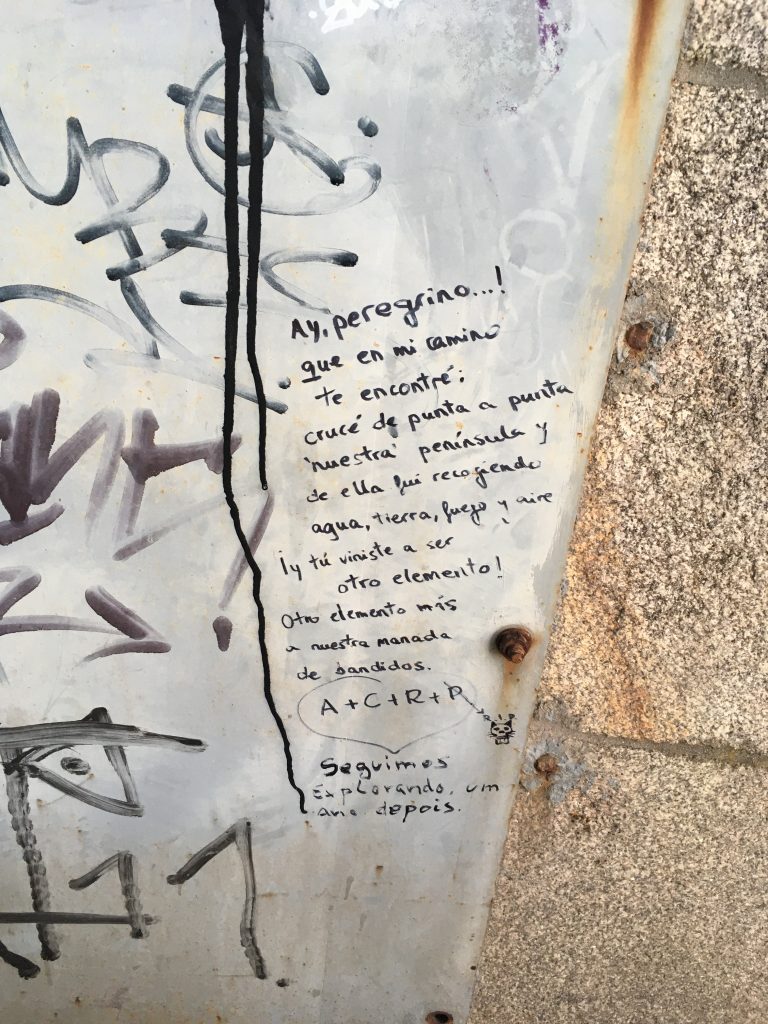 Ay, peregrino...!
que en mi camino
te encontré:
crucé de punta a punta
'nuestra' península y
de ella fui recogiendo
agua, tierra, fuego y aire
¡y tú viniste a ser
otro elemento!
Otro elemento más
a nuestra manada
de bandidos.
A + C + R + P
Seguimos
Explorando, um
ano depois.
11